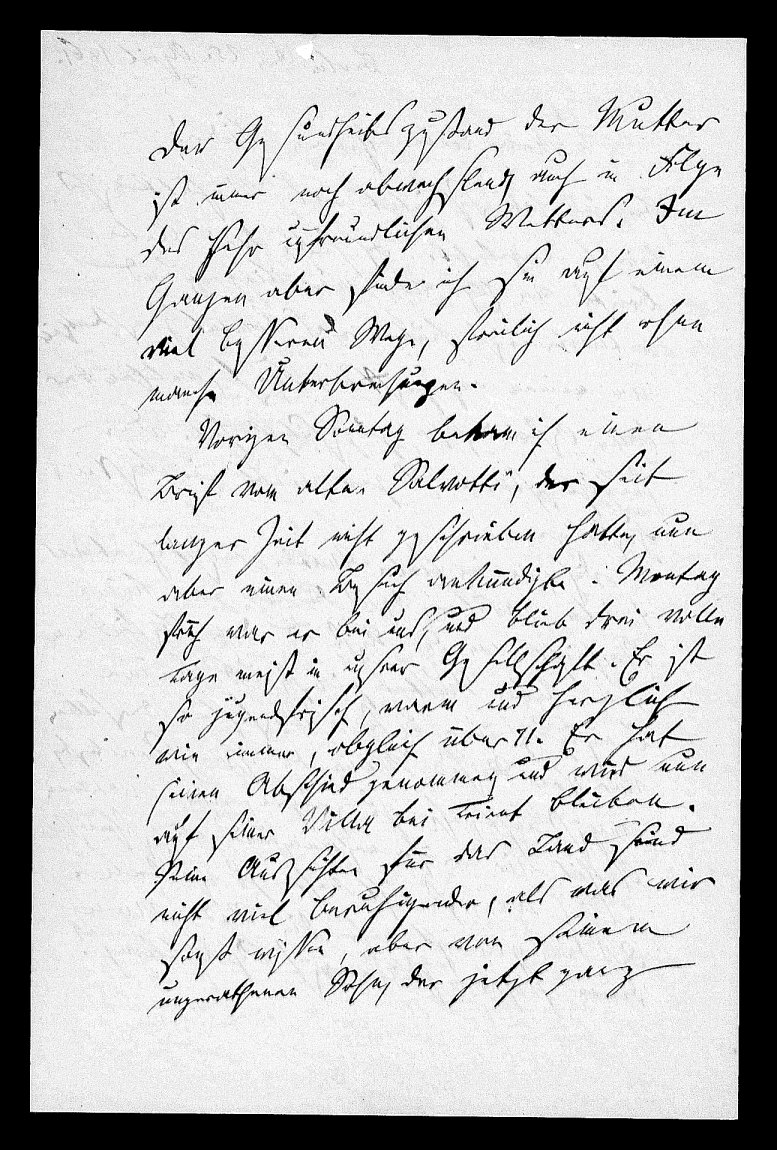 Der Gesundheitszustand der Mutter
ist immer noch abwechselnd, auch in Folge
des sehr unfreundlichen Wetters. Im
Ganzen aber finde ich sie auf einem
viel besseren Wege, freilich nicht ohne
manche Unterbrechungen.
Vorigen Sonntag bekam ich einen
Brief vom alten Salvotti, der seit
langer Zeit nicht geschrieben hatte, nun
aber einen Besuch ankündigte. Montag
früh war er bei uns, und blieb drei volle
Tage meist in unsrer Gesellschaft. Er ist
so jugendfrisch, warm und herzlich
wie immer, obgleich über 71. Er hat
seinen Abschied genommen und wird nun
auf seiner Villa bei Trient bleiben.
Seine Aussichten für das Land sind
nicht viel beruhigender, als was wir
sonst wissen, aber von seinem
ungerathenen Sohn, der jetzt ganz